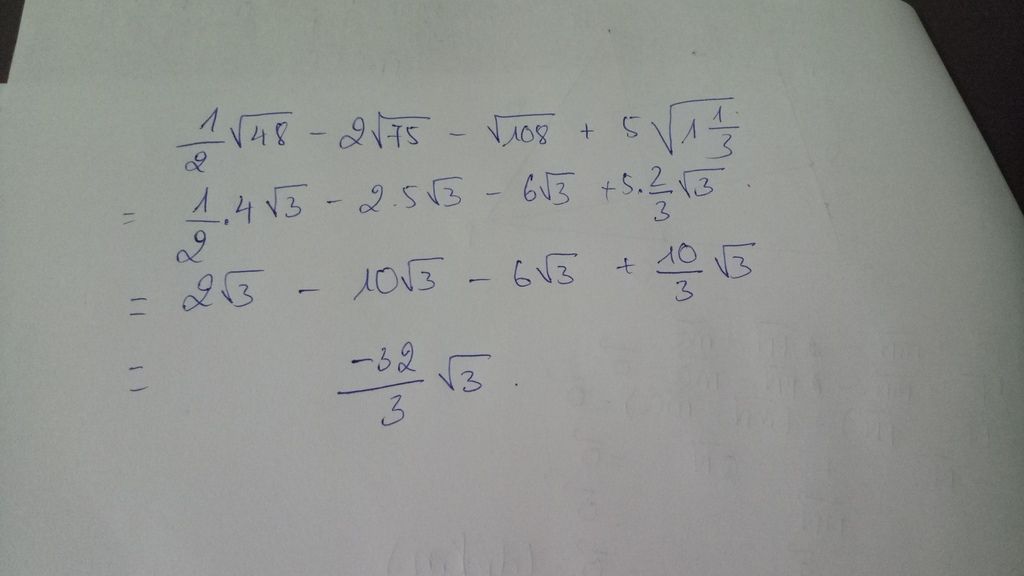 1/2 √48 - 2√75 - √108 + 5√1 1/3
= 1/2 . 4√3 - 2.5√3 - 6√3 + 5. 2/3 √3 .
= 2√3 - 10√3 - 6√3 + 10/3 √3
= -32/3 √3 .